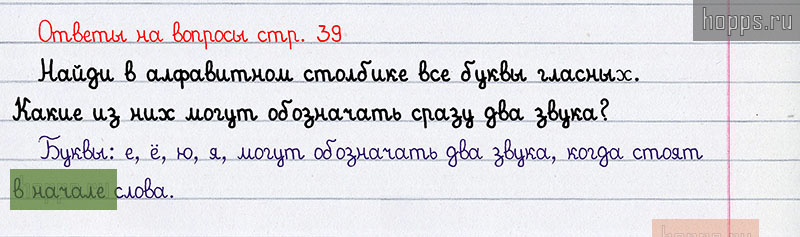 hopps.ru
Ответы на вопросы стр. 39
Найди в алфавитном столбике все буквы гласных.
Какие из них могут обозначать сразу два звука?
Буквы: е, ё, ю, я, могут обозначать два звука, когда стоят
в начале слова.
hopps.ru